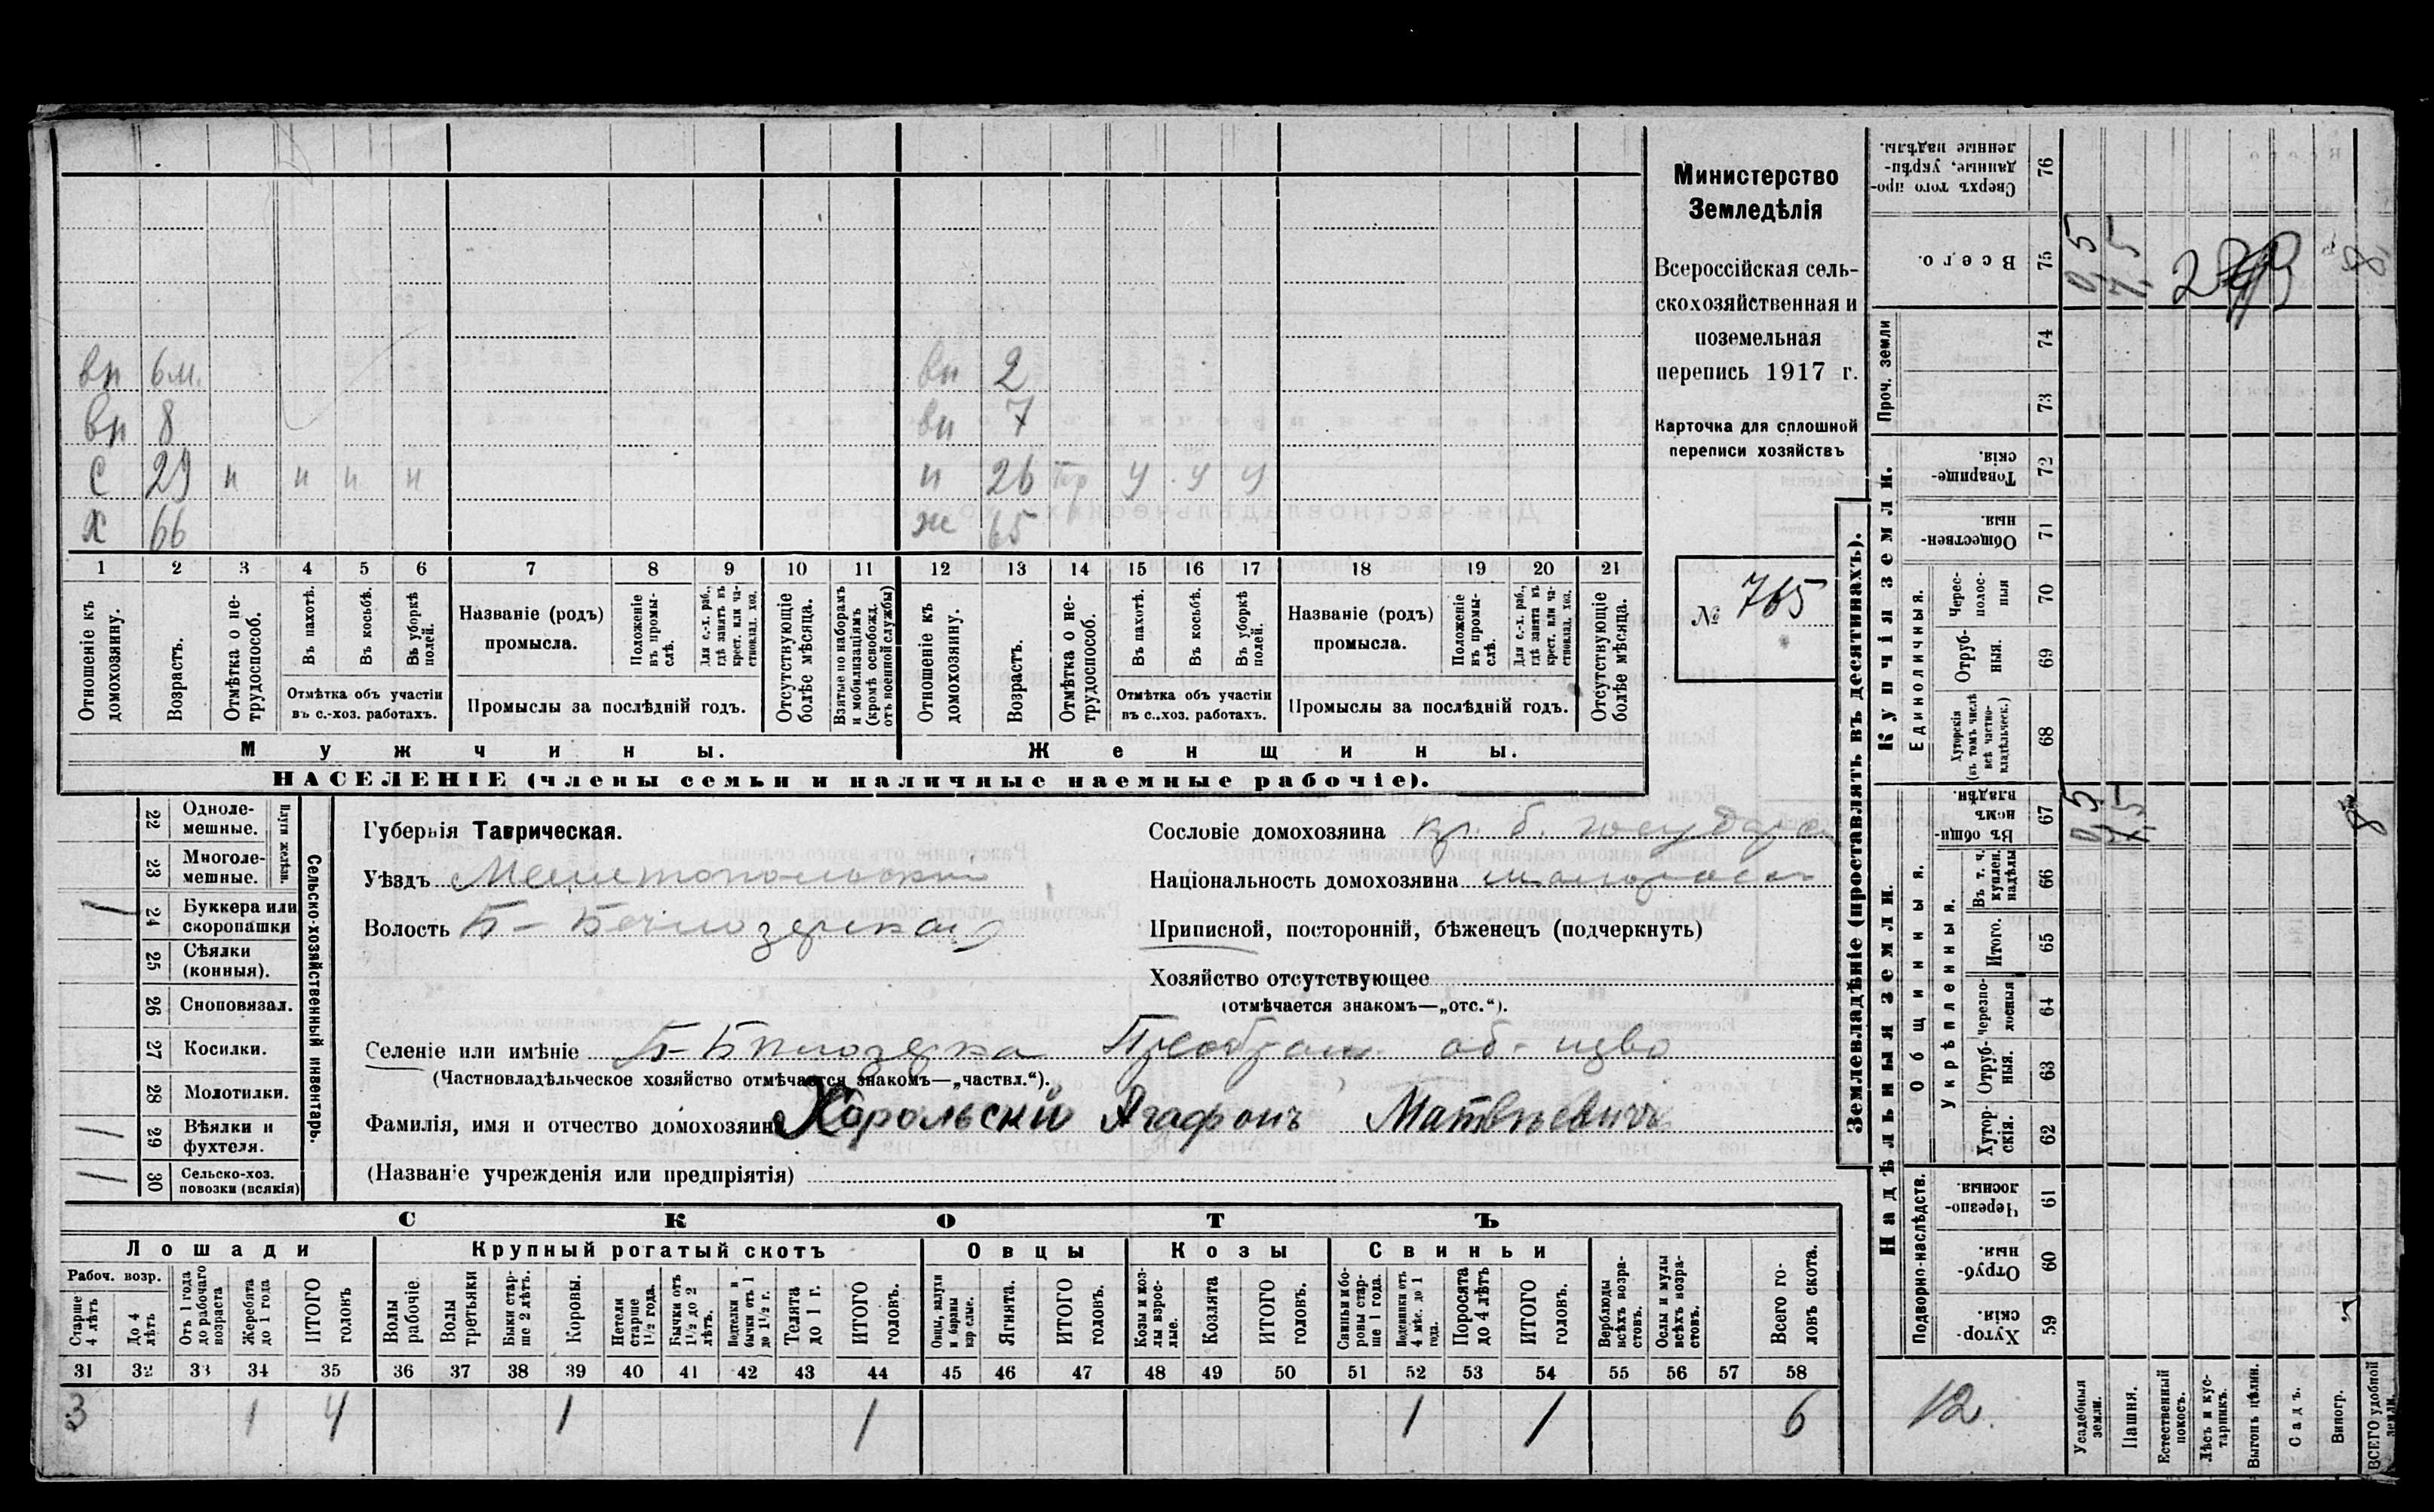 вн 6 м. вн 2
вн 8 вн 7
С 29 н н н н н 26 тр У У У
Х 66 ж 65
1 2 3 4 5 6 7 8 9 10 11 12 13 14 15 16 17 18 19 20 21
Отношеніе къ домохозяину.
Возрастъ.
Отмѣтка о нетрудоспособ.
Въ пахотѣ.
Въ косьбѣ.
Въ уборкѣ полей.
Отмѣтка объ участіи
въ с.-хоз. работахъ.
Названіе (родъ)
промысла.
Положеніе въ промыслѣ.
Для с.-х. раб., гдѣ занятъ въ крест. или частновлад. хоз.
Промыслы за послѣдній годъ.
Отсутствующіе болѣе мѣсяца.
Взятые по наборамъ и мобилизаціямъ (кромѣ освобожд. отъ военной службы)
Отношеніе къ домохозяину.
Возрастъ.
Отмѣтка о нетрудоспособ.
Въ пахотѣ.
Въ косьбѣ.
Въ уборкѣ полей.
Отмѣтка объ участіи
въ с..хоз. работахъ.
Названіе (родъ)
промысла.
Положеніе въ промыслѣ.
Для с.-х. раб., гдѣ занятъ въ крест. или частновлад. хоз.
Промыслы за послѣдній годъ.
Отсутствующіе болѣе мѣсяца.
Мужчины. Женщины.
НАСЕЛЕНІЕ (члены семьи и наличные наемные рабочіе).
Министерство
Земледѣлія
Всероссійская сель-
скохозяйственная и
поземельная
перепись 1917 г.
Карточка для сплошной
переписи хозяйствъ
№ 765
22 Одноле-
мешные.
23 Многоле-
мешные.
Плуги желѣзн.
1 24 Буккера или
скоропашки
25 Сѣялки
(конныя).
26 Сноповязал.
27 Косилки.
28 Молотилки.
1 29 Вѣялки и
фухтеля.
1 30 Сельско-хоз.
повозки (всякія)
Сельско-хозяйственный инвентарь.
Губернія Таврическая.
Уѣздъ Мелитопольскій
Волость Б-Бѣлозерская
Сословіе домохозяина кр. б. государ
Національность домохозяина малоросс
Приписной, посторонній, бѣженецъ (подчеркнуть)
Хозяйство отсутствующее
(отмѣчается знакомъ—„отс.“).
Селеніе или имѣніе Б-Бѣлозерка Преображ. об-цво
(Частновладѣльческое хозяйство отмѣчается знакомъ—„частвл.“).
Фамилія, имя и отчество домохозяина Харольскій Агафонъ Матвѣевичъ
(Названіе учрежденія или предпріятія)
СКОТЪ
Лошади Крупный рогатый скотъ Овцы Козы Свиньи
Рабоч. возр.
Старше 4 лѣтъ
До 4 лѣтъ
Отъ 1 года до рабочаго возраста
Жеребята до 1 года
ИТОГО головъ
Волы рабочіе.
Волы третьяки
Быки старше 2 лѣтъ.
Коровы.
Нетели старше 1 1/2 года.
Бычки отъ 1 1/2 до 2 лѣтъ.
Подтелки и бычки отъ 1 до 1 1/2 г.
Телята до 1 г.
ИТОГО головъ.
Овцы, валухи и бараны взрослые.
Ягнята.
ИТОГО головъ.
Козы и козлы взрослые.
Козлята
ИТОГО головъ.
Свиньи и боровы старше 1 года.
Подсвинки отъ 4 мѣс. до 1 года.
Поросята до 4 лѣтъ
ИТОГО головъ.
Верблюды всѣхъ возрастовъ.
Ослы и мулы всѣхъ возрастовъ.
Всего головъ скота.
31 32 33 34 35 36 37 38 39 40 41 42 43 44 45 46 47 48 49 50 51 52 53 54 55 56 57 58
3 1 4 1 1 1 1 6
Землевладѣніе (проставлять въ десятинахъ).
Сверхъ того проданные, укрѣпленные надѣлы. 76
Всего. 75 0,5 7,5 8
Проч. земли 74
73
Купчія земли.
Товарищескія. 72
Общественныя. 71
Единоличныя.
Чересполосныя 70
Отрубныя. 69
Хуторскія (въ томъ числѣ всѣ частновладѣльческ.) 68
Надѣльныя земли.
Общинныя.
Въ общинномъ владѣн. 67 0,5 7,5 8
Укрѣпленныя.
Въ т. ч. куплен. надѣлы 66
Итого. 65
Черезполосныя 64
Отрубныя. 63
Хуторскія. 62
Подворно-наслѣдств.
Черезполосныя. 61
Отрубныя. 60
Хуторскія. 59
12.
Усадебныя земли.
Пашня.
Естественный покосъ.
Лѣсъ и кустарникъ.
Выгонъ цѣлин.
Садъ.
Виногр.
ВСЕГО удобной земли.